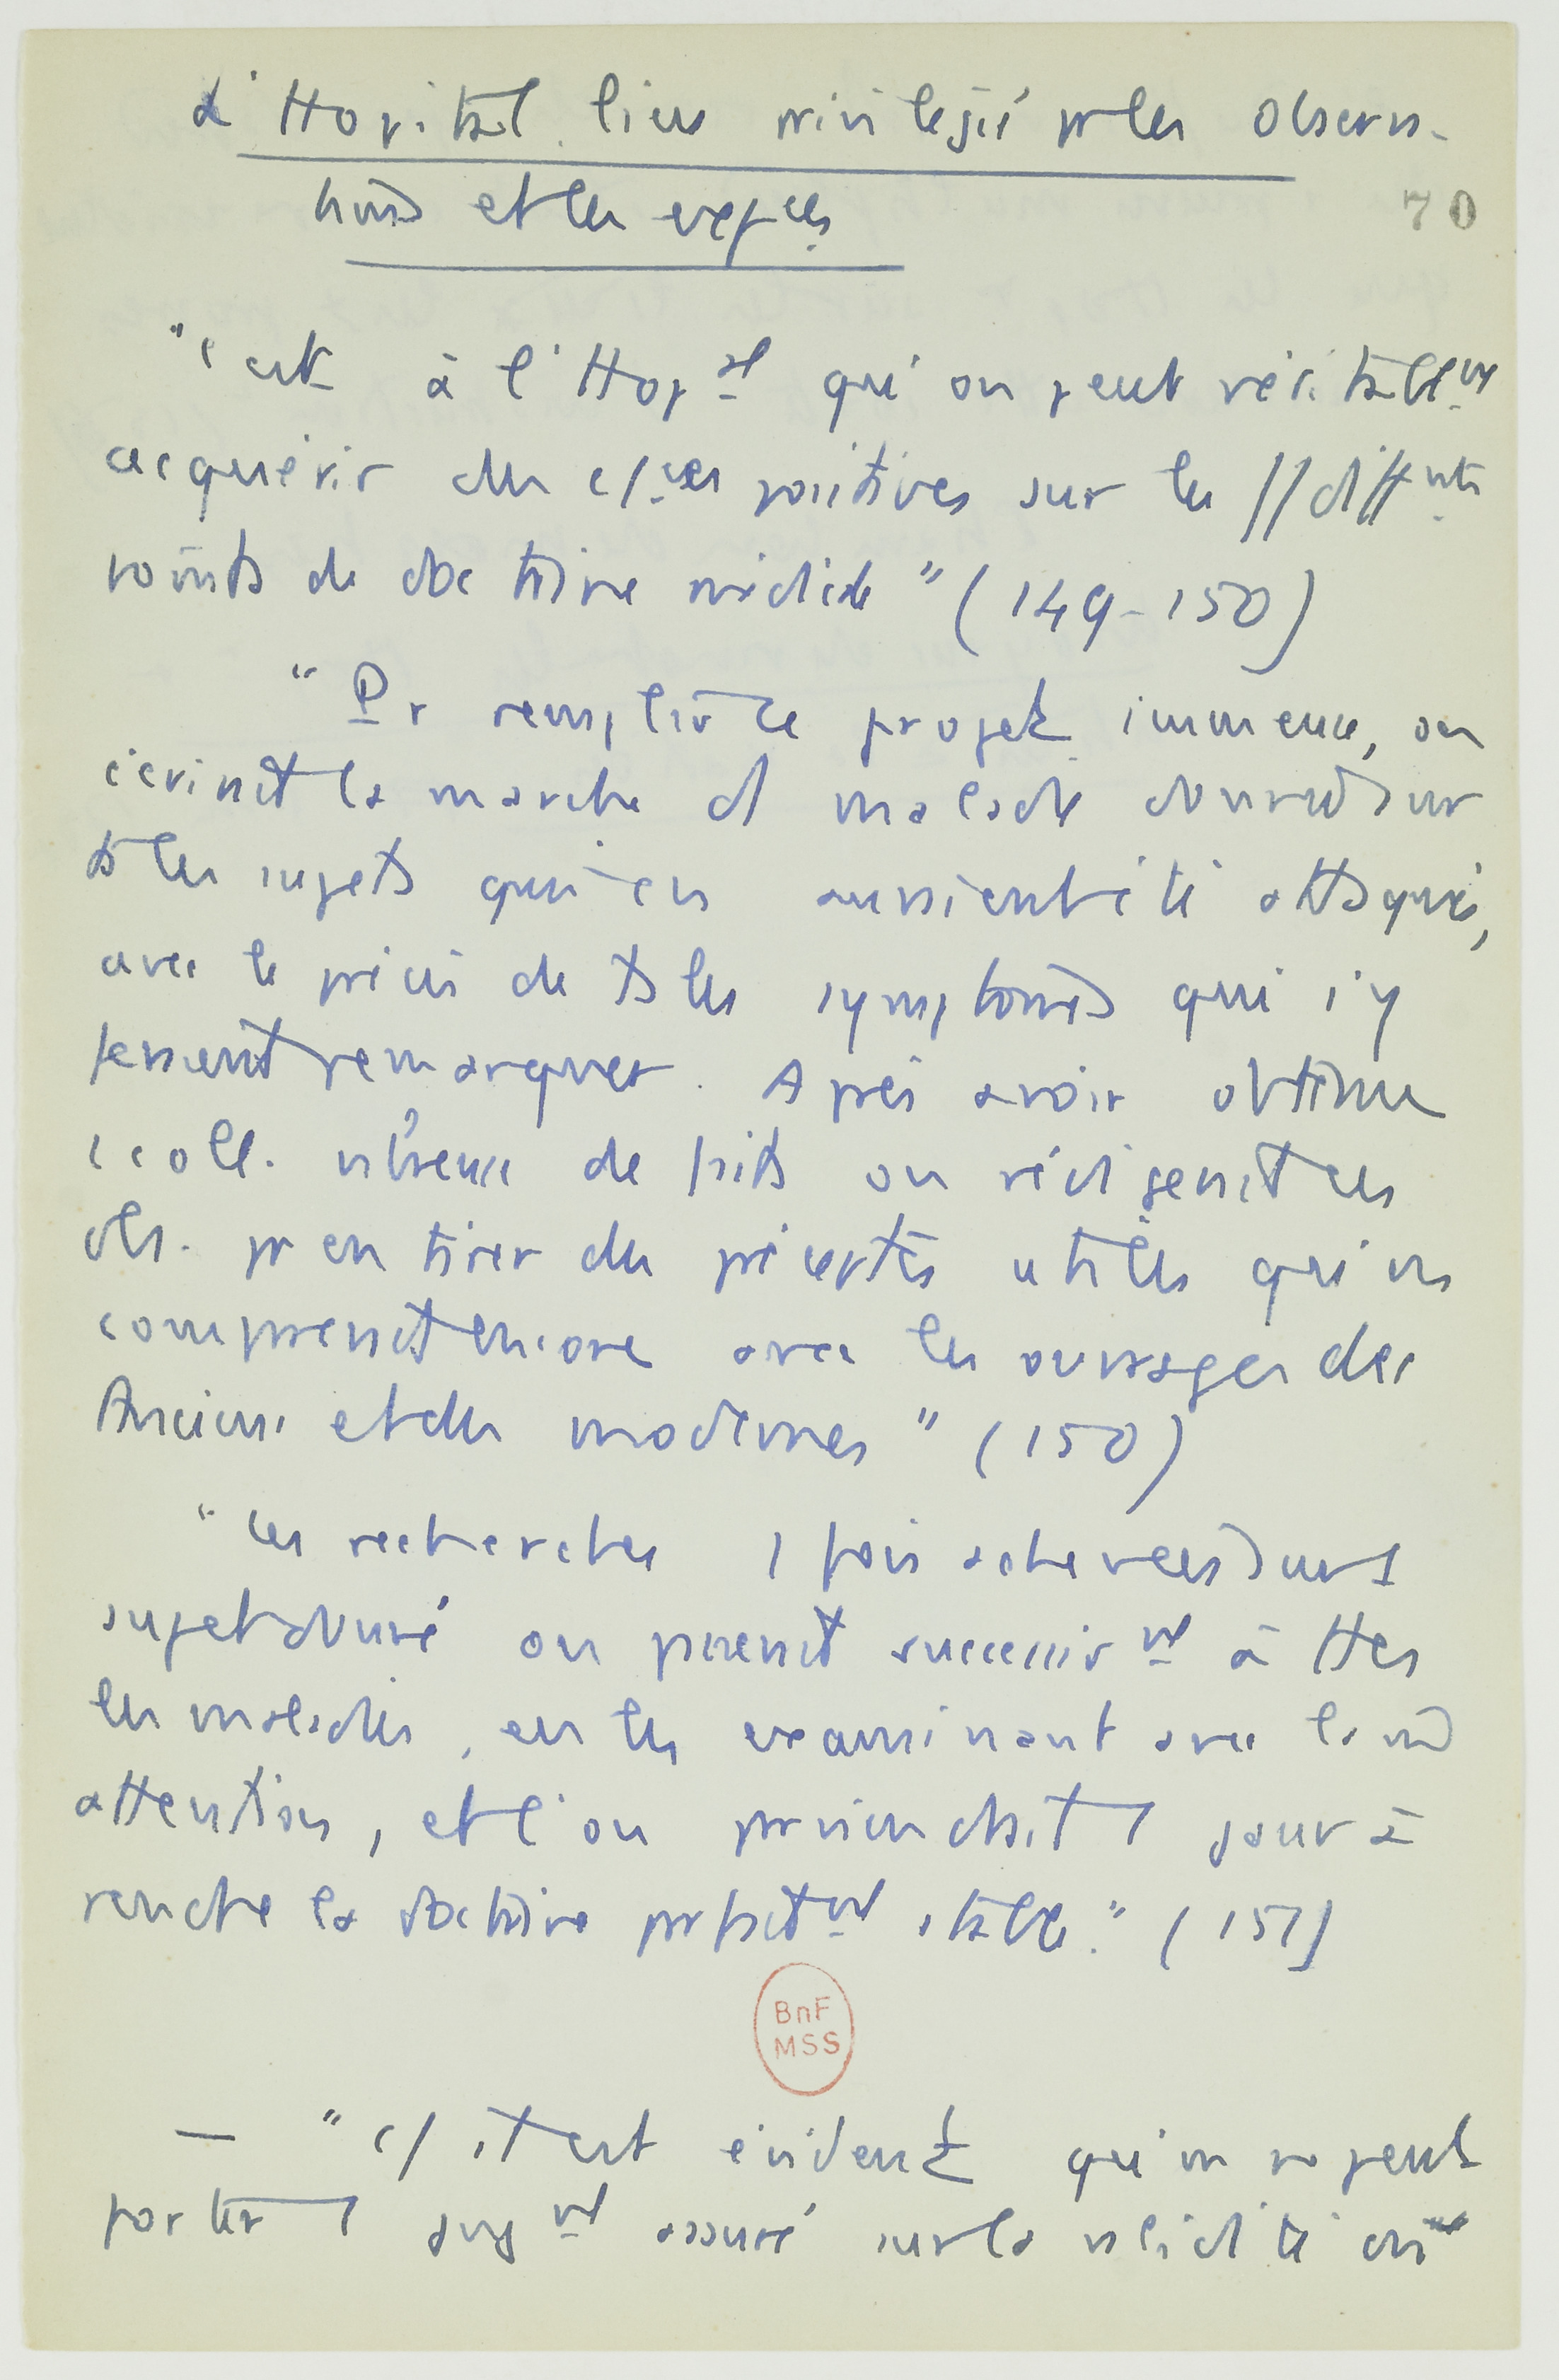 L'Hopital. lieu privilégié pr les observa-
tions et les expces
70
"C'est à l'Hopal qu'on peut véritablemt
acquérir des c/ces positives sur les // diffnts
points de doctrine médicale" (149-150)
"Pr remplir ce projet immense, on
écrirait la marche d maladie donnée sur
ts les sujets qui en auraient été attaqués,
avec le précis de ts les symptomes qui s'y
feraient remarquer. Après avoir obtenu
1 coll. nbreuse de faits on rédigerait ces
obs. pr en tirer des préceptes utiles qu'on
comprerait encore avec les ouvrages des
Anciens et des modernes" (150)
"Ces recherches 1 fois achevées sur 1
sujet donné on passerait successivmt à ttes
les maladies, en les examinant avec la m
attention, et l'on parviendrait 1 jour à
rendre la doctrine parfaitmt stable." (151)
BnF
MSS
— "c/ il est évident qu'on ne peut
porter 1 jugmt assuré sur la validité